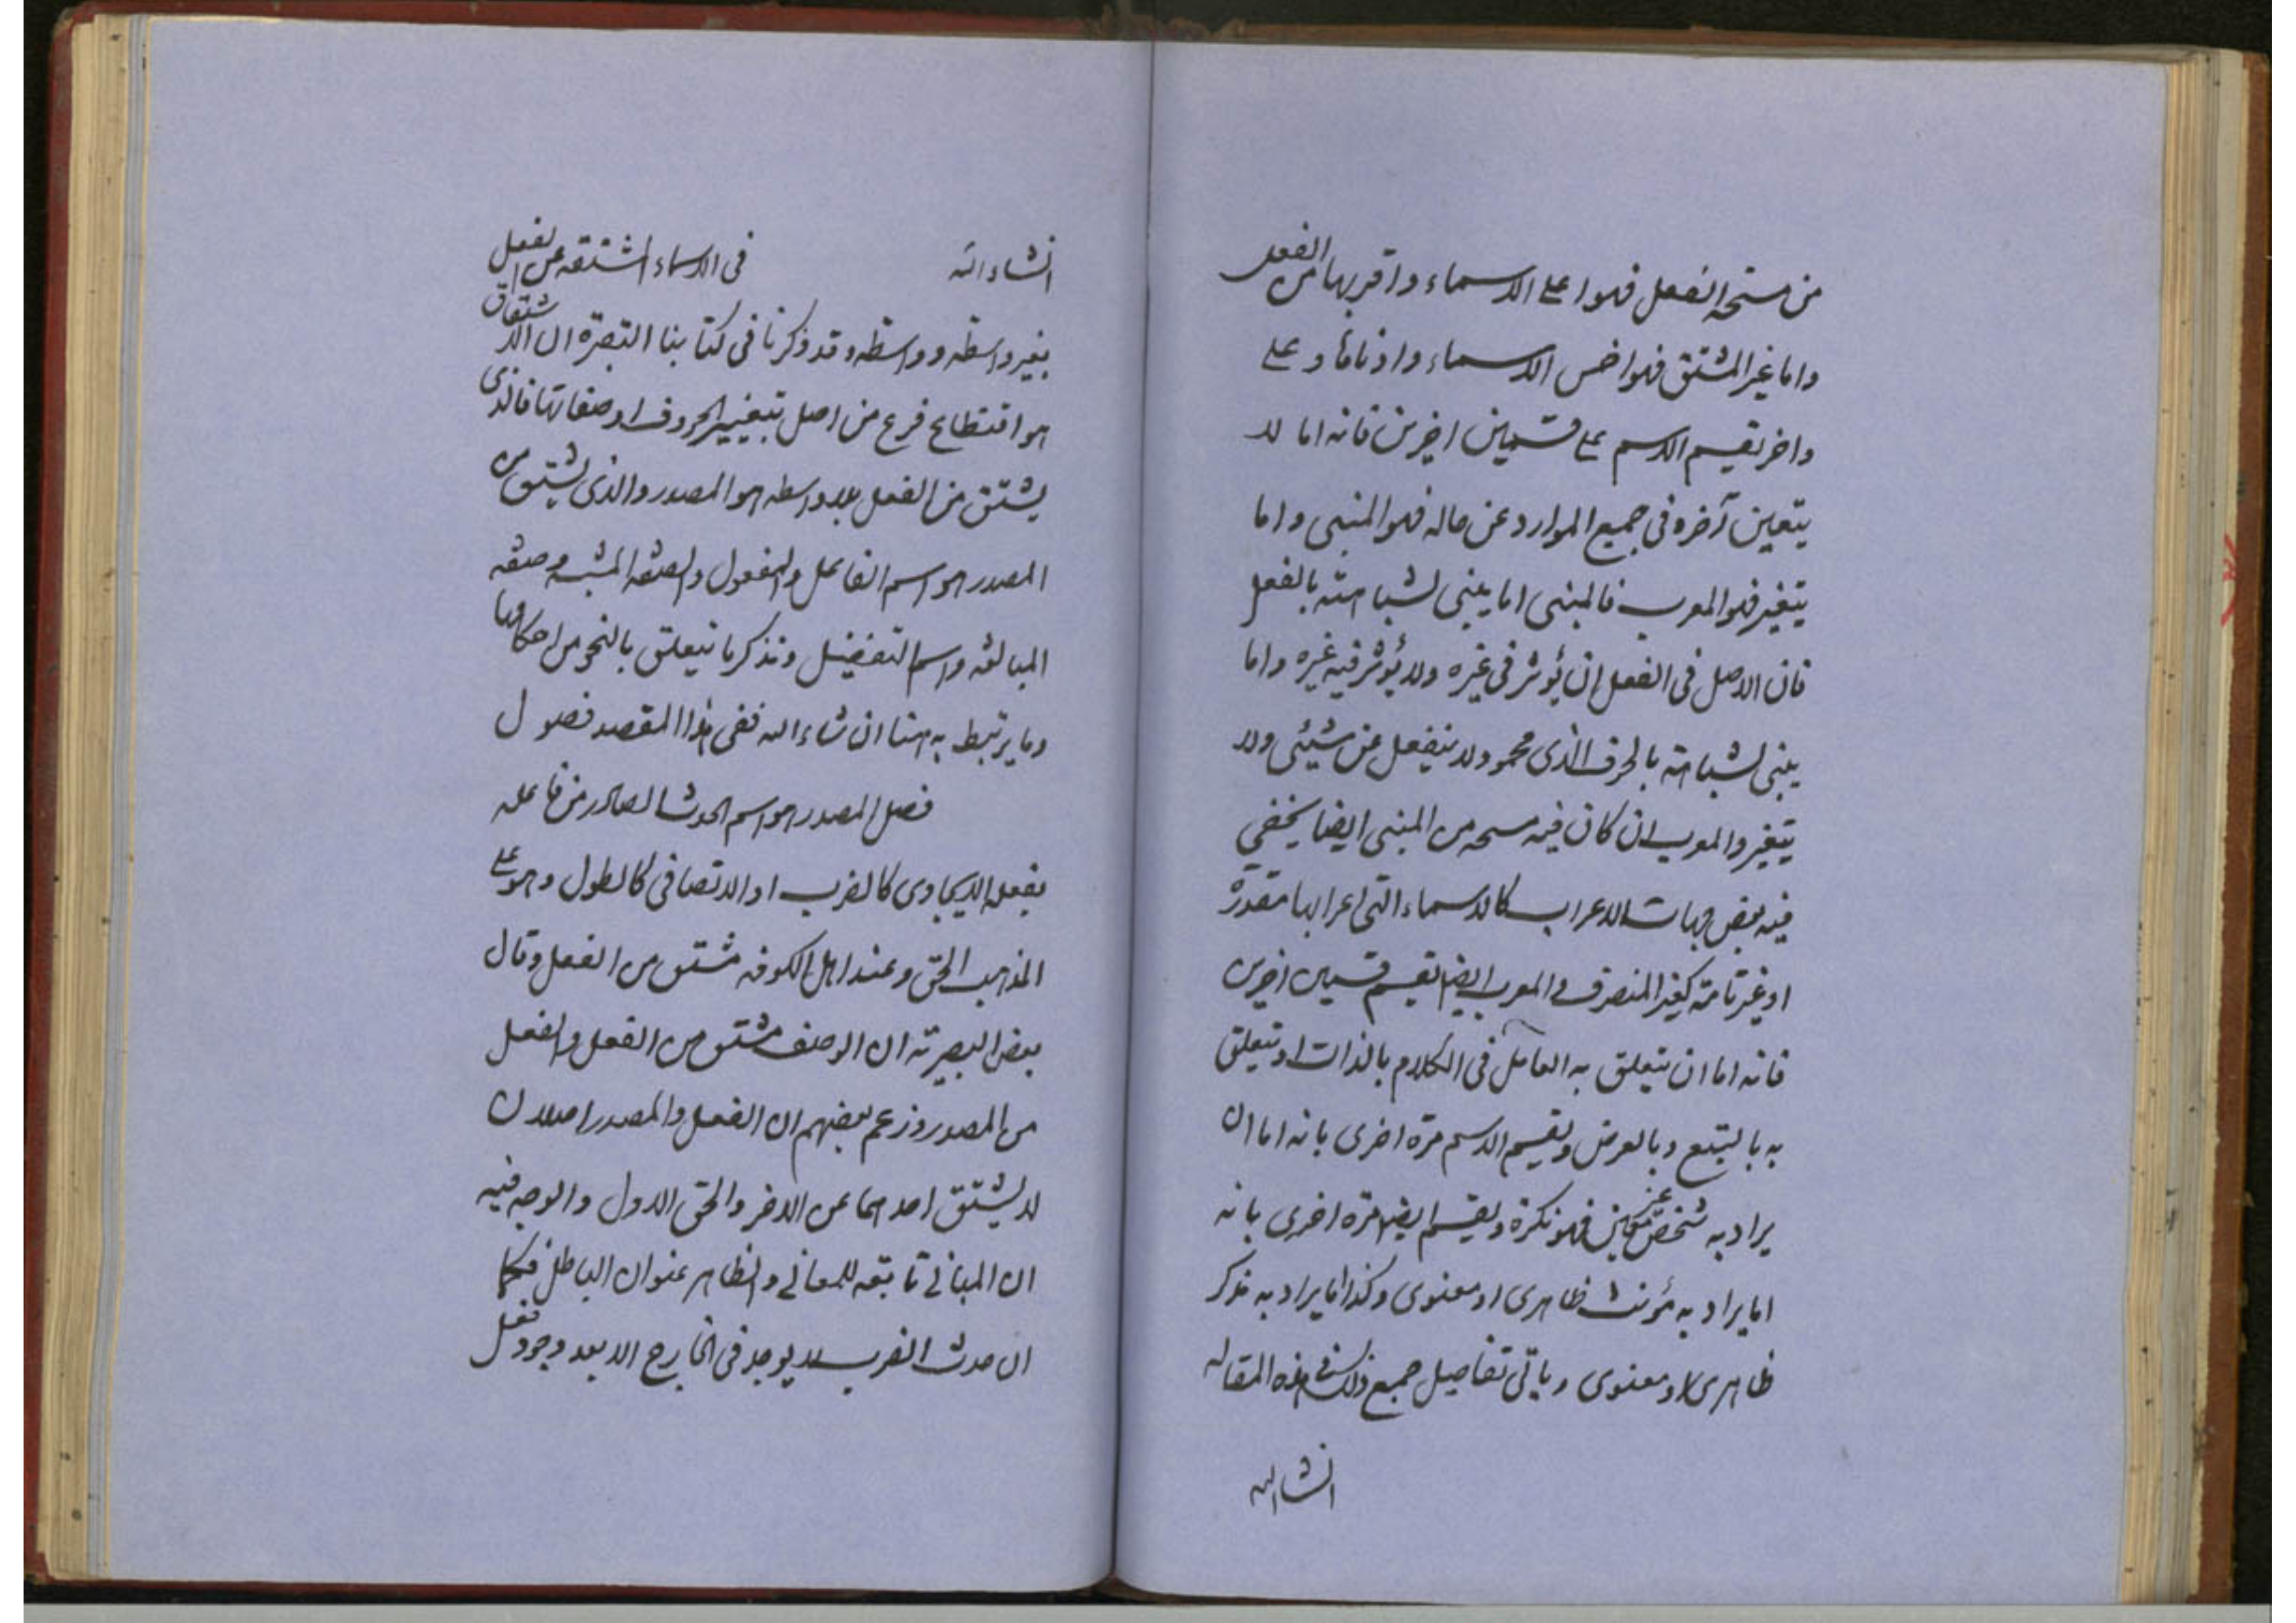 من مسحة الفعل فهوا على الاسماء واقربها من الفعل
واما غير المشتق فهوا خس الاسماء وادناها وعلى
واخر تقسيم الاسم على قسمين اخرين فانه اما لا
يتعين آخره فى جميع الموارد عن حاله فهو المبنى واما
يتغير فهو المعرب فالمبنى اما يبنى لشباهته بالفعل
فان الاصل فى الفعل ان يؤثر فى غيره ولا يؤثر فيه غيره واما
يبنى لشباهته بالحرف الذى محمود لا ينفعل عن شيئى ولا
يتغير والمعرب ان كان فيه مسحه من المبنى ايضا يخفي
فيه بعض جهات الاعراب كالاسماء التى اعرابها مقدرة
او غير تامة كغير المنصرف و المعرب ايض يقسم قسمين اخرين
فانه اما ان يتعلق به العامل فى الكلام بالذات او يتعلق
به بالتبع وبالعرض ويقسم الاسم مرة اخرى بانه اما ان
يراد به شخص غير معين فهو نكرة ويقسم ايض مرة اخرى بانه
اما يراد به مؤنث ظاهرى او معنوى وكذا اما يراد به مذكر
ظاهرى او معنوى وياتى تفاصيل جميع ذلك فى هذه المقاله
انشاالله
انشاءالله فى الاسماء المشتقه من الفعل
بغير واسطه وواسطه وقد ذكرنا فى كتابنا التبصرة ان الاشتقاق
هو اقتطاع فرع من اصل بتغيير الحروف او صفاتها فالذى
يشتق من الفعل بلا واسطه هو المصدر والذى يشتق من
المصدر هو اسم الفاعل والمفعول والصفة المشبه وصفة
المبالغه واسم التفضيل ونذكر ما يتعلق بالنحو من احكامها
وما يرتبط به هنا ان شاء الله ففى هذا المقصد فصول
فصل المصدر هو اسم الحدث الصادر من فاعله
بفعله الايجادى كالضرب او الاتصافى كالطول وهو على
المذهب الحق وعند اهل الكوفه مشتق من الفعل وقال
بعض البصرية ان الوصف مشتق من الفعل والفعل
من المصدر وزعم بعضهم ان الفعل والمصدر اصلان
لا يشتق احدهما عن الاخر والحق الاول والوجه فيه
ان المبانى تابعه للمعانى والظاهر عنوان الباطن فكما
ان حدث الضرب لا يوجد فى الخارج الا بعد وجود فعل